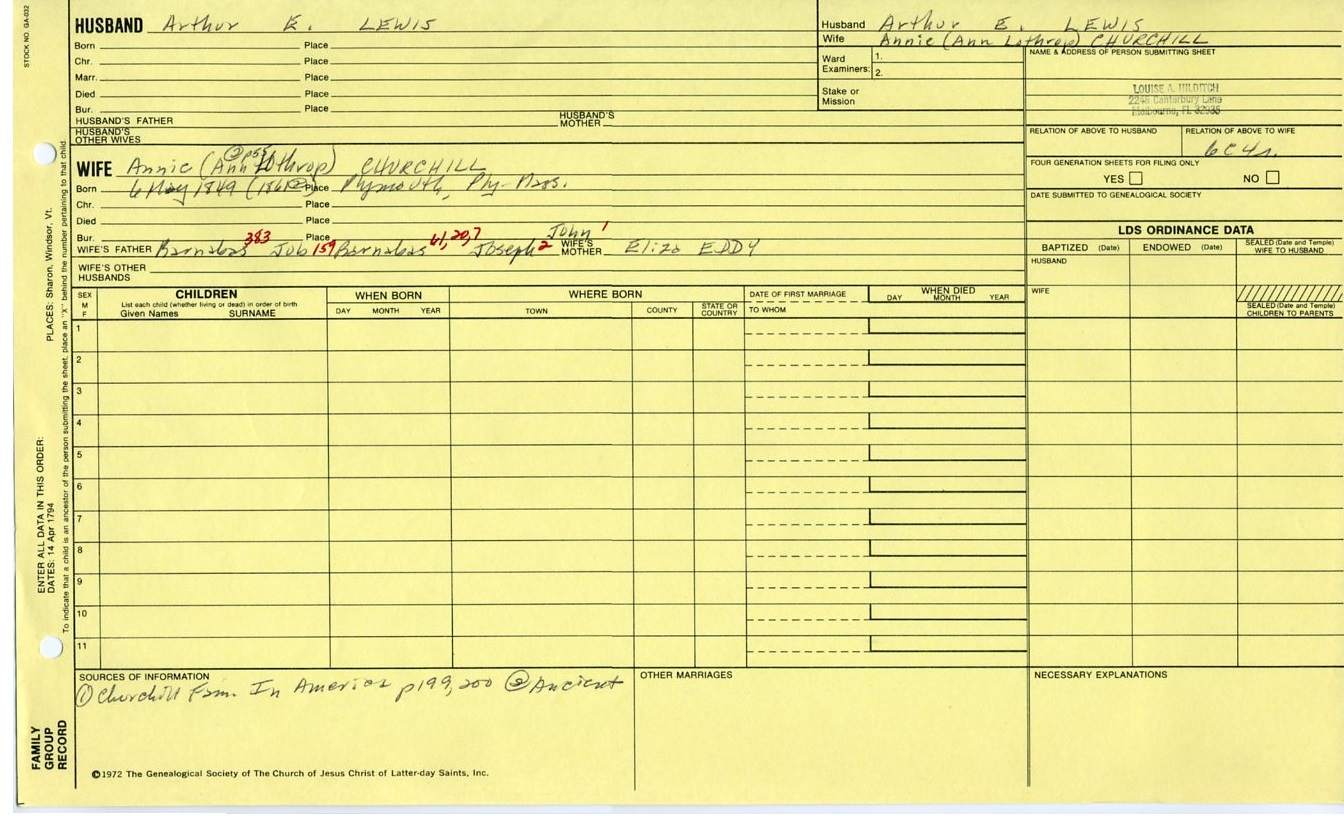 STOCK NO. GA-032
HUSBAND Arthur E. LEWIS
Born Place
Chr. Place
Marr. Place
Died Place
Bur. Place
HUSBAND'S FATHER HUSBAND'S MOTHER
HUSBAND'S OTHER WIVES
Husband Arthur E. LEWIS
Wife Annie (Ann Lothrop) CHURCHILL
Ward Examiners: 1.
2.
Stake or Mission
NAME & ADDRESS OF PERSON SUBMITTING SHEET
LOUISE A. HILDITCH
2248 Canterbury Lane
Melbourne, FL 32935
RELATION OF ABOVE TO HUSBAND RELATION OF ABOVE TO WIFE
6C4r.
FOUR GENERATION SHEETS FOR FILING ONLY
YES NO
DATE SUBMITTED TO GENEALOGICAL SOCIETY
② p55
WIFE Annie (Ann Lothrop) CHURCHILL
Born 6 May 1849 Place Plymouth, Ply-Mass.
Chr. Place
Died Place
Bur. Place
John 1
WIFE'S FATHER Barnabas 383 Job 159 Barnabas 61,20,7 Joseph 2 WIFE'S MOTHER Eliza EDDY
WIFE'S OTHER HUSBANDS
LDS ORDINANCE DATA
BAPTIZED (Date) ENDOWED (Date) SEALED (Date and Temple) WIFE TO HUSBAND
HUSBAND
WIFE
SEALED (Date and Temple) CHILDREN TO PARENTS
SEX M F CHILDREN WHEN BORN WHERE BORN DATE OF FIRST MARRIAGE WHEN DIED
List each child (whether living or dead) in order of birth
Given Names SURNAME DAY MONTH YEAR TOWN COUNTY STATE OR COUNTRY TO WHOM DAY MONTH YEAR
1
2
3
4
5
6
7
8
9
10
11
SOURCES OF INFORMATION
① Churchill Fam. In America p199,200 ② Ancient
OTHER MARRIAGES
NECESSARY EXPLANATIONS
©1972 The Genealogical Society of The Church of Jesus Christ of Latter-day Saints, Inc.
FAMILY GROUP RECORD
ENTER ALL DATA IN THIS ORDER:
DATES: 14 Apr 1794
PLACES: Sharon, Windsor, Vt.
To indicate that a child is an ancestor of the person submitting the sheet, place an "X" behind the number pertaining to that child.